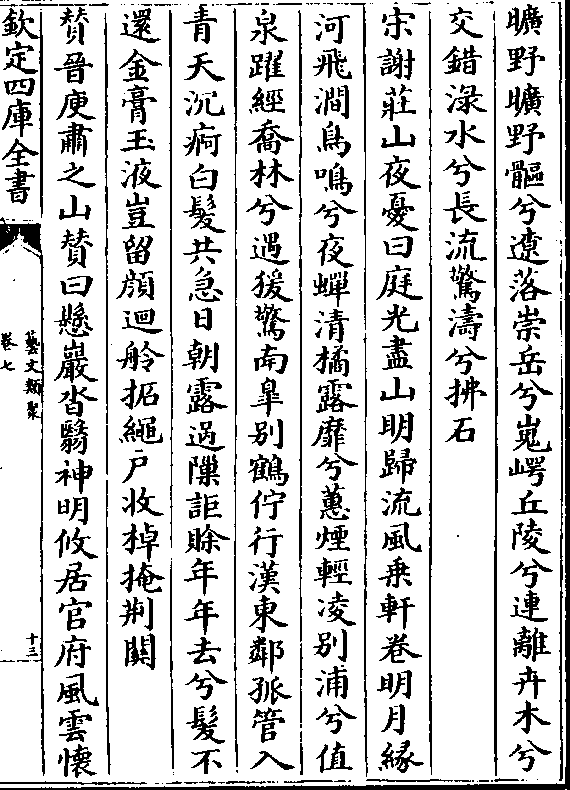 曠野曠野䝙兮遼落崇岳兮嵬崿丘陵兮連離卉木兮
交錯淥水兮長流驚濤兮拂石
宋謝莊山夜憂曰庭光盡山明歸流風乗軒卷明月緣
河飛澗鳥鳴兮夜蟬清橘露靡兮蕙煙輕凌别浦兮值
泉躍經喬林兮遇猨驚南臯别鶴佇行漢東鄰孤管入
青天沉痾白髮共急日朝露過隟詎賖年年去兮髮不
還金膏玉液豈留顔迴舲拓繩戸收棹掩荆關
賛晉庾肅之山賛曰懸巖沓翳神明攸居官府風雲懷
欽定四庫全書
藝文類聚
卷七
十三